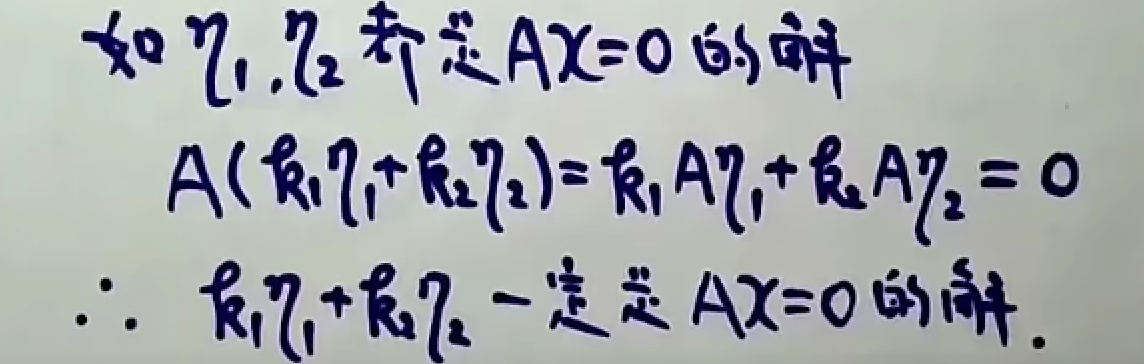 如 η₁,η₂ 都是 AX=0 的解
A(k₁η₁+k₂η₂)=k₁Aη₁+k₂Aη₂=0
∴ k₁η₁+k₂η₂ 一定是 AX=0 的解.